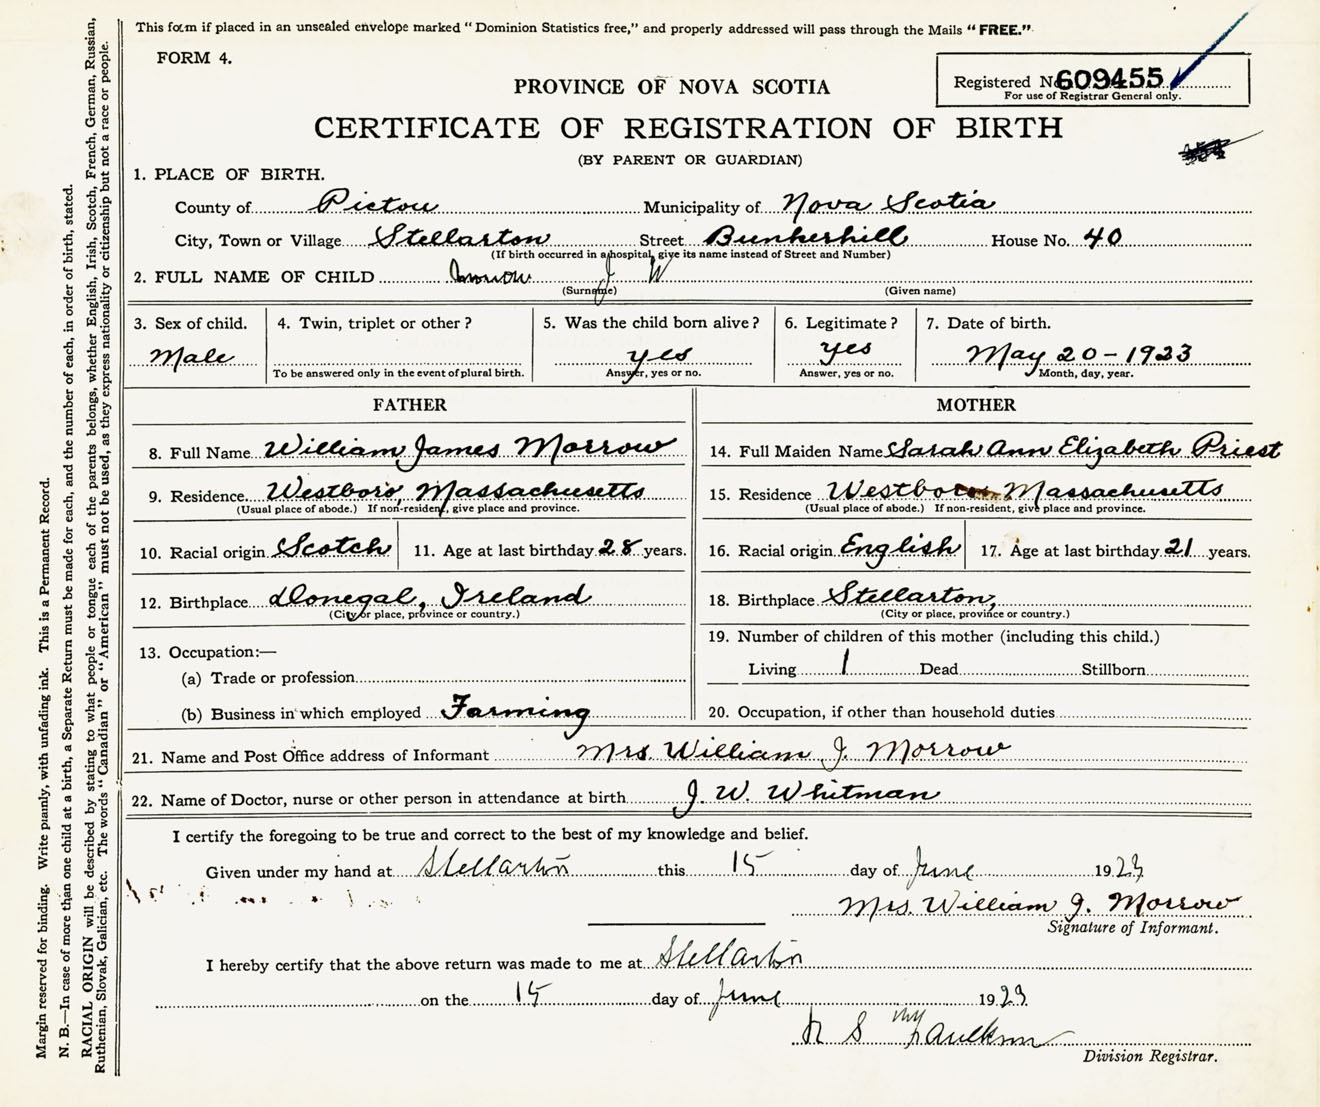 This form if placed in an unsealed envelope marked "Dominion Statistics free," and properly addressed will pass through the Mails "FREE."
FORM 4.
Registered No. 609455
For use of Registrar General only.
PROVINCE OF NOVA SCOTIA
CERTIFICATE OF REGISTRATION OF BIRTH
(BY PARENT OR GUARDIAN)
1. PLACE OF BIRTH.
County of Pictou Municipality of Nova Scotia
City, Town or Village Stellarton Street Bunkerhill House No. 40
(If birth occurred in a hospital, give its name instead of Street and Number)
2. FULL NAME OF CHILD Morrow J W
(Surname) (Given name)
3. Sex of child. 4. Twin, triplet or other? 5. Was the child born alive? 6. Legitimate? 7. Date of birth.
Male yes yes May 20-1923
To be answered only in the event of plural birth. Answer, yes or no. Answer, yes or no. Month, day, year.
FATHER MOTHER
8. Full Name William James Morrow 14. Full Maiden Name Sarah Ann Elizabeth Priest
9. Residence Westboro, Massachusetts 15. Residence Westboro Massachusetts
(Usual place of abode.) If non-resident, give place and province. (Usual place of abode.) If non-resident, give place and province.
10. Racial origin Scotch 11. Age at last birthday 28 years. 16. Racial origin English 17. Age at last birthday 21 years.
12. Birthplace Donegal, Ireland 18. Birthplace Stellarton,
(City or place, province or country.) (City or place, province or country.)
19. Number of children of this mother (including this child.)
13. Occupation:—
Living 1 Dead Stillborn
(a) Trade or profession
(b) Business in which employed Farming 20. Occupation, if other than household duties
21. Name and Post Office address of Informant Mrs. William J. Morrow
22. Name of Doctor, nurse or other person in attendance at birth J. W. Whitman
I certify the foregoing to be true and correct to the best of my knowledge and belief.
Given under my hand at Stellarton this 15 day of June 1923
Mrs. William J. Morrow
Signature of Informant.
I hereby certify that the above return was made to me at Stellarton
on the 15 day of June 1923
Division Registrar.
Margin reserved for binding. Write plainly, with unfading ink. This is a Permanent Record.
N. B.—In case of more than one child at a birth, a Separate Return must be made for each, and the number of each, in order of birth, stated.
RACIAL ORIGIN will be described by stating to what people or tongue each of the parents belongs, whether English, Irish, Scotch, French, German, Russian,
Ruthenian, Slovak, Galician, etc. The words "Canadian" or "American" must not be used, as they express nationality or citizenship but not a race or people.